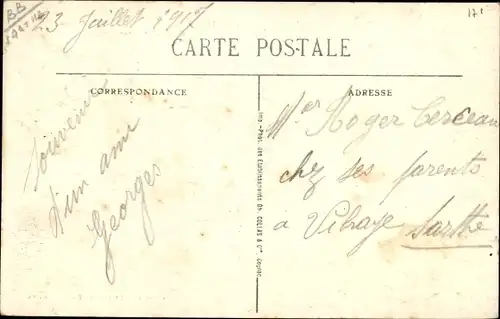 23 Juillet 1917
CARTE POSTALE
CORRESPONDANCE
ADRESSE
Souvenir
d'un ami
Georges
Imp.-Phot. des Etablissements Ch. COLLAS & Cie, Cognac
Roger Cerceau
chez ses parents
a Vibraye
Sarthe